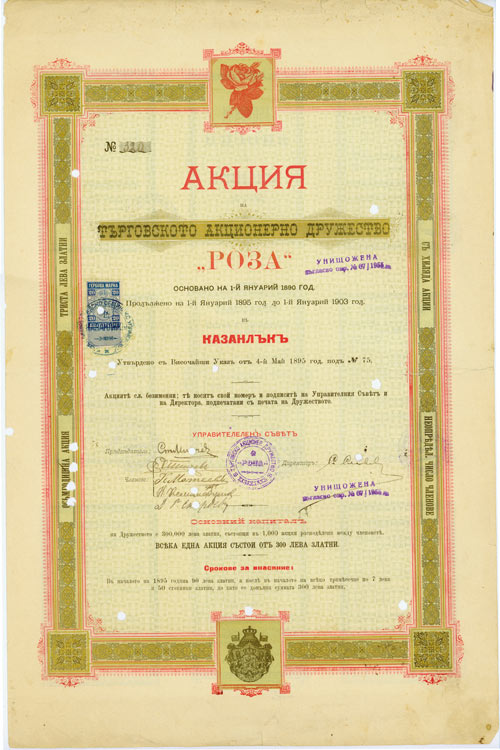 №
АКЦИЯ
НА
ТЪРГОВСКОТО АКЦИОНЕРНО ДРУЖЕСТВО
„РОЗА“
УНИЩОЖЕНА
ОСНОВАНО НА 1-Й ЯНУАРИЙ 1890 ГОД.
Продължено на 1-й Януарий 1895 год до 1-й Януарий 1903 год.
въ
КАЗАНЛЪКЪ
Утвърдено съ Височайши Указъ отъ 4-й Май 1895 год. подъ № 75.
ГЕРБОВА МАРКА
ТРИСТА ЛЕВА ЗЛАТНИ
СЪ ХИЛЯДА АКЦИИ
Акциитѣ сѫ безименни; тѣ носятъ свой номеръ и подписитѣ на Управителния Съвѣтъ и
на Директора, подпечатани съ печата на Дружеството.
УПРАВИТЕЛЕНЪ СЪВѢТЪ
Председатель:
Директоръ:
Членове:
РОЗА
УНИЩОЖЕНА
НЕОПРЕДѢЛ. ЧИСЛО ЧЛЕНОВЕ
АКЦИЯ
Основний капиталъ
на Дружеството е 300,000 лева златни, състоящи въ 1,000 акции распредѣлени между членоветѣ.
ВСѢКА ЕДНА АКЦИЯ СЪСТОИ ОТЪ 300 ЛЕВА ЗЛАТНИ.
Срокове за внасяние:
Въ началото на 1895 година 90 лева златни, а послѣ въ началото на всѣко тримѣсечие по 7 лева
и 50 стотинки златни, до като се допълни суммата 300 лева златни.